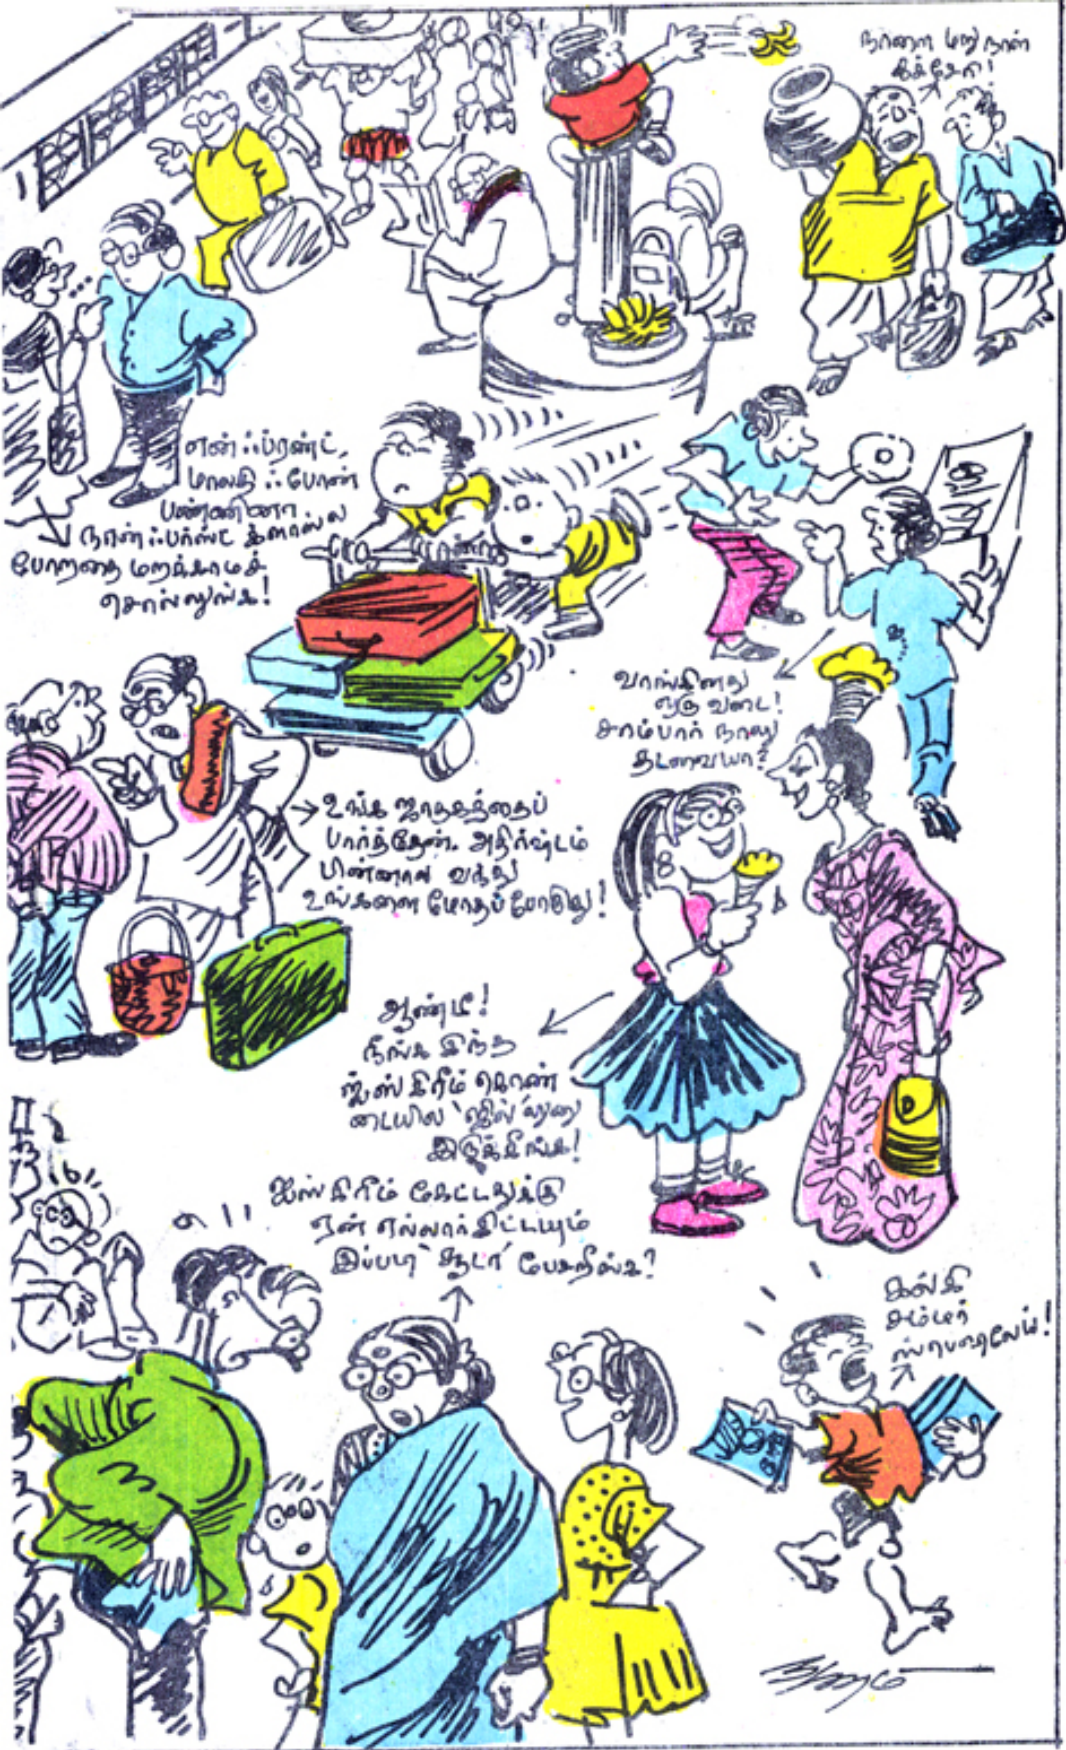 நாளை மறு நாள்
கச்சேரி!
என் ஃப்ரண்ட்,
மாலதி ஃபோன்
பண்ணினா
நான் ஃபர்ஸ்ட் க்ளாஸ்ல
போறதை மறக்காமச்
சொல்லுங்க!
வாங்கினது
ஒரு வடை!
சாம்பார் நாலு
தடவையா?
உங்க ஜாதகத்தைப்
பார்த்தேன். அதிர்ஷ்டம்
பின்னால வந்து
உங்களை மோதப் போகிறது!
ஆண்டீ!
நீங்க இந்த
ஐஸ்கிரீம் கொண்
டையில 'ஜில்'லுனு
இருக்கீங்க!
ஐஸ்கிரீம் கேட்டதுக்கு
ஏன் எல்லார்கிட்டயும்
இப்படி 'சூடா' பேசறீங்க?
கல்கி
சம்மர்
ஸ்பெஷலேய்!